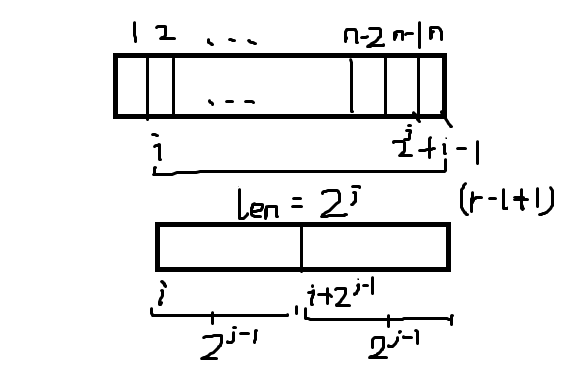 1 2 ... n-2 n-1 n
...
i 2^j+i-1
len = 2^j (r-l+1)
i i+2^{j-1}
2^{j-1} 2^{j-1}